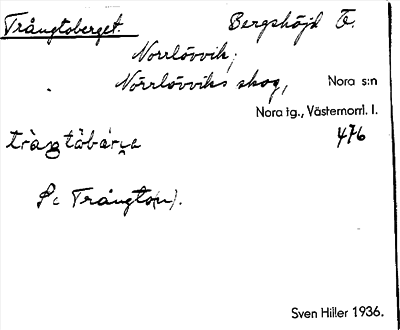 Trångtoberget. Bergshöjd Tr.
Norrlövvik,
Norrlövviks skog, Nora s:n
Nora tg., Västernorrl. l.
tràŋtòbár̥e 476
Se Trångto(n).
Sven Hiller 1936.